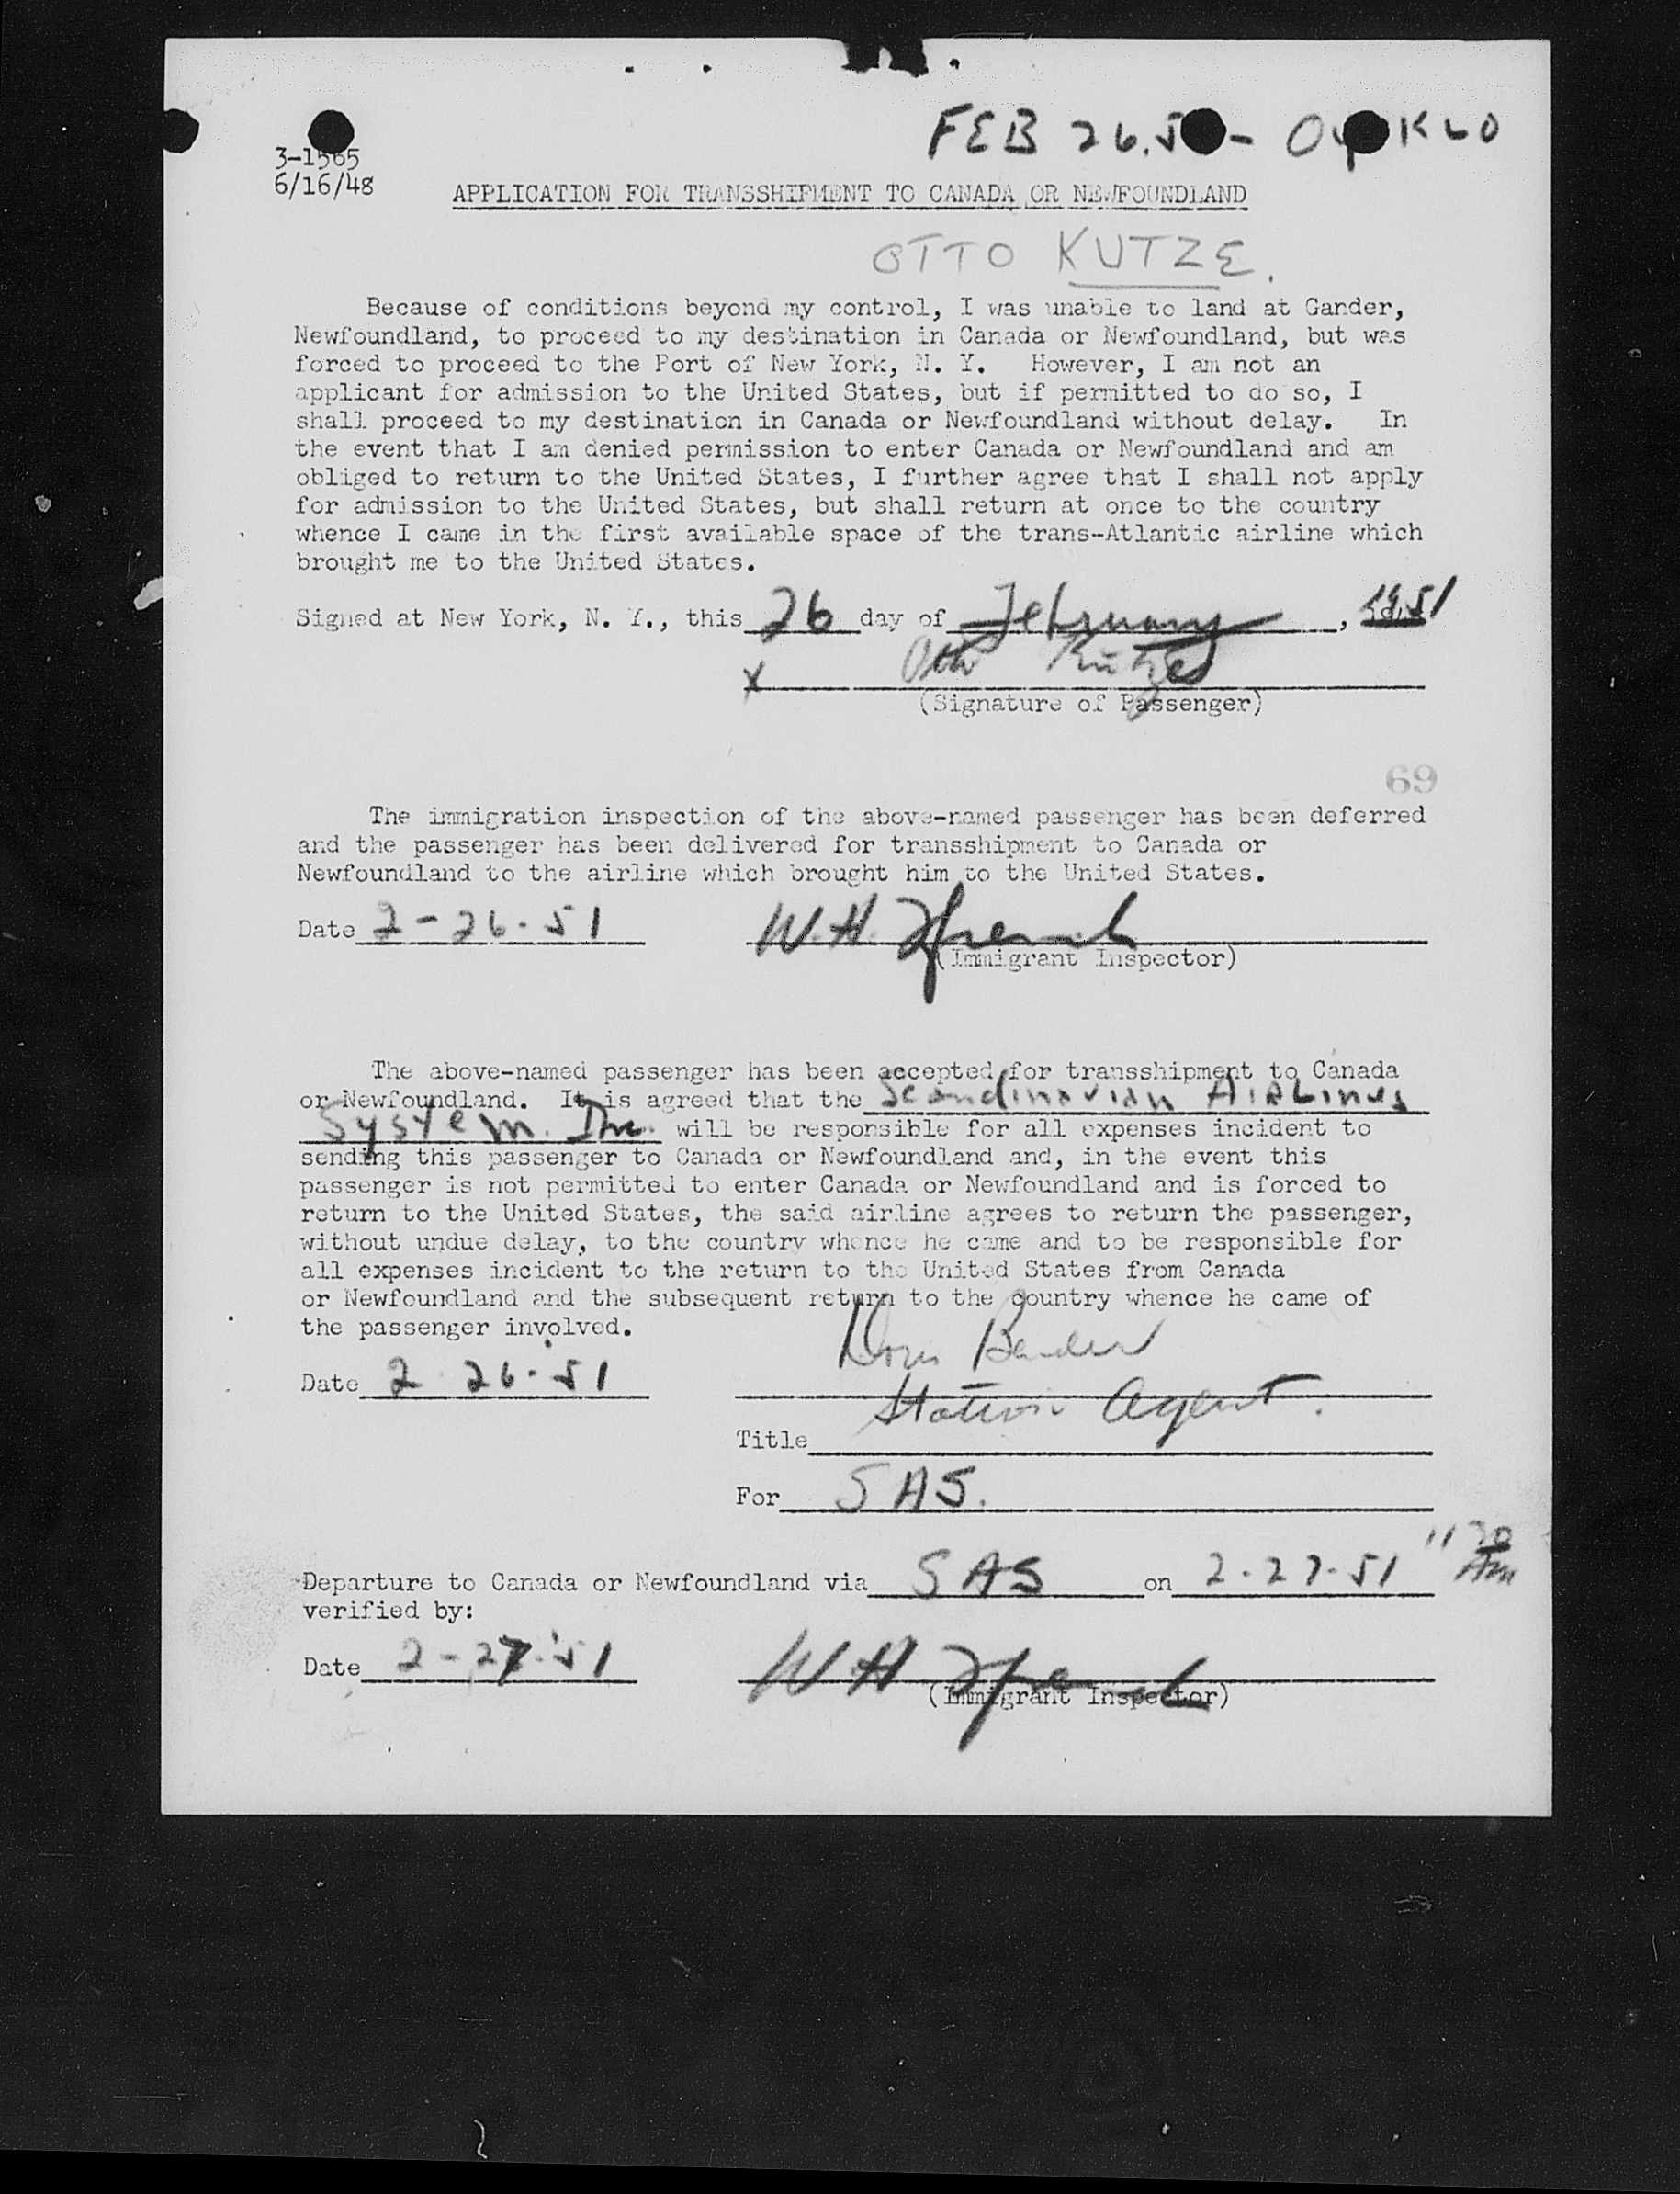 FEB 26.5 - OY KLO
3-1565
6/16/48
APPLICATION FOR TRANSSHIPMENT TO CANADA OR NEWFOUNDLAND
OTTO KUTZE.
Because of conditions beyond my control, I was unable to land at Gander,
Newfoundland, to proceed to my destination in Canada or Newfoundland, but was
forced to proceed to the Port of New York, N. Y. However, I am not an
applicant for admission to the United States, but if permitted to do so, I
shall proceed to my destination in Canada or Newfoundland without delay. In
the event that I am denied permission to enter Canada or Newfoundland and am
obliged to return to the United States, I further agree that I shall not apply
for admission to the United States, but shall return at once to the country
whence I came in the first available space of the trans-Atlantic airline which
brought me to the United States.
Signed at New York, N. Y., this 26 day of February, 1951
x Otto Kutze
(Signature of Passenger)
69
The immigration inspection of the above-named passenger has been deferred
and the passenger has been delivered for transshipment to Canada or
Newfoundland to the airline which brought him to the United States.
Date 2-26-51 W.H.
(Immigrant Inspector)
The above-named passenger has been accepted for transshipment to Canada
or Newfoundland. It is agreed that the Scandinavian AIRLines
System. Inc. will be responsible for all expenses incident to
sending this passenger to Canada or Newfoundland and, in the event this
passenger is not permitted to enter Canada or Newfoundland and is forced to
return to the United States, the said airline agrees to return the passenger,
without undue delay, to the country whence he came and to be responsible for
all expenses incident to the return to the United States from Canada
or Newfoundland and the subsequent return to the country whence he came of
the passenger involved.
Date 2 26-51
Station Agent.
Title
For SAS.
Departure to Canada or Newfoundland via SAS on 2-27-51 11 30 AM
verified by:
Date 2-27-51 W H
(Immigrant Inspector)